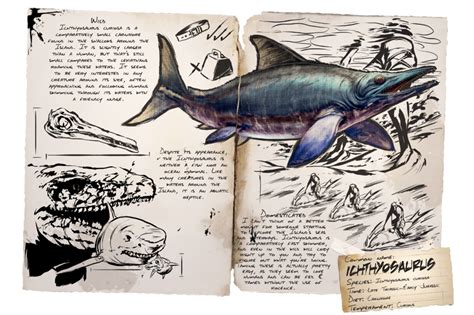 Wild
Ichthyosaurus curiosa is a
comparatively small carnivore
found in the shallows around the
Island. It is slightly larger
than a human, but that's still
small compared to the leviathans
roaming these waters. It seems
to be very interested in any
creature around its size, often
approaching and following humans
swimming through its waters with
a friendly nature.
Despite its appearance,
the Ichthyosaurus is
neither a fish nor an
ocean mammal. Like
many creatures in the
waters around the
Island, it is an aquatic
reptile.
Domesticated
I can't think of a better
mount for someone starting
to explore the Island's seas
and
Ichthyosaurus is a
comparatively fast swimmer,
and even in the wild will
right up to you and try to
become your friend.
taming these is actually pretty
easy, as they seem to love
humans and can be fed &
tamed without the use of
violence.
Common Name:
Ichthyosaurus
Species: Ichthyosaurus curiosa
Time: Late Triassic-Early Jurassic
Diet: Carnivore
Temperament: Curious